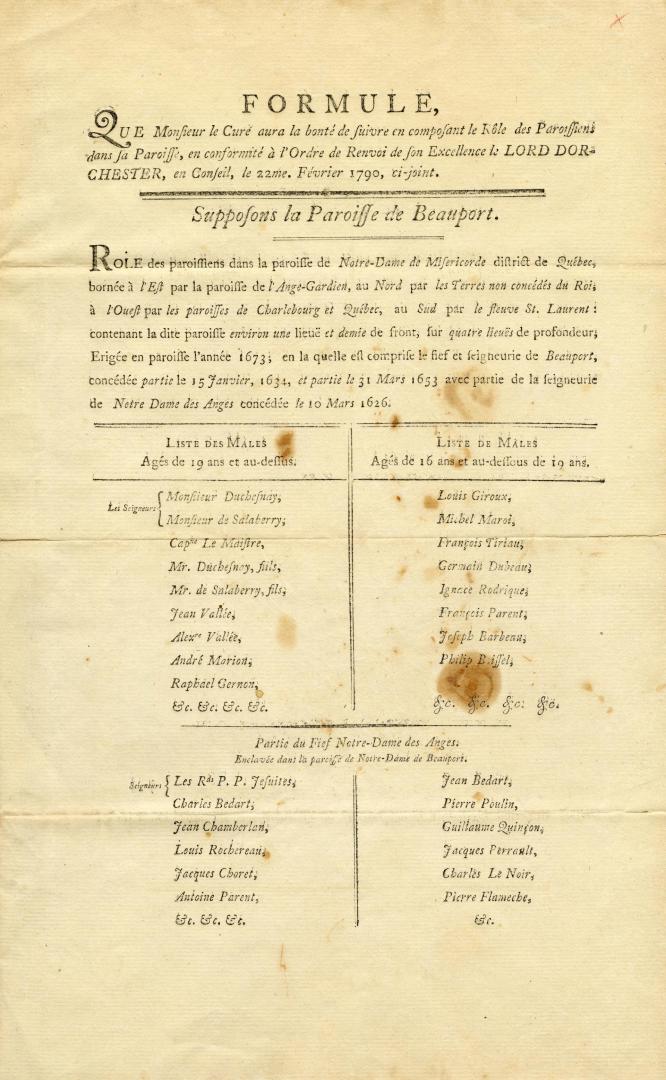 FORMULE,
QUE Monſieur le Curé aura la bonté de ſuivre en compoſant le Rôle des Paroiſſiens
dans ſa Paroiſſe, en conformité à l'Ordre de Renvoi de ſon Excellence le LORD DOR-
CHESTER, en Conſeil, le 22me. Février 1790, ci-joint.
Suppoſons la Paroiſſe de Beauport.
ROLE des paroiſſiens dans la paroiſſe de Notre-Dame de Miſericorde diſtrict de Québec,
bornée à l'Eſt par la paroiſſe de l'Ange-Gardien, au Nord par les Terres non concédés du Roi;
à l'Oueſt par les paroiſſes de Charlebourg et Québec, au Sud par le fleuve St. Laurent:
contenant la dite paroiſſe environ une lieuë et demie de front, ſur quatre lieuës de profondeur;
Erigée en paroiſſe l'année 1673; en la quelle eſt compriſe le fief et ſeigneurie de Beauport,
concédée partie le 15 Janvier, 1634, et partie le 31 Mars 1653 avec partie de la ſeigneurie
de Notre Dame des Anges concédée le 10 Mars 1626.
LISTE DES MALES
Agés de 19 ans et au-deſſus.
Les Seigneurs { Monſieur Ducheſnay,
Monſieur de Salaberry,
Capne Le Maiſtre,
Mr. Ducheſnay, fils,
Mr. de Salaberry, fils,
Jean Vallée,
Alexre Vallée,
André Marion,
Raphael Gernon,
&c. &c. &c. &c.
LISTE DE MALES
Agés de 16 ans et au-deſſous de 19 ans.
Louis Giroux,
Michel Maroi,
François Tiriau,
Germain Dubeau,
Ignace Rodrique,
François Parent,
Joſeph Barbeau,
Philip Biſſel,
&c. &c. &c. &c.
Partie du Fief Notre-Dame des Anges.
Enclavée dans la paroiſſe de Notre-Dame de Beauport.
Seigneurs { Les Rds P. P. Jeſuites,
Charles Bedart,
Jean Chamberlan,
Louis Rochereau,
Jacques Choret,
Antoine Parent,
&c. &c. &c.
Jean Bedart,
Pierre Poulin,
Guillaume Quinçon,
Jacques Perrault,
Charles Le Noir,
Pierre Flameche,
&c.